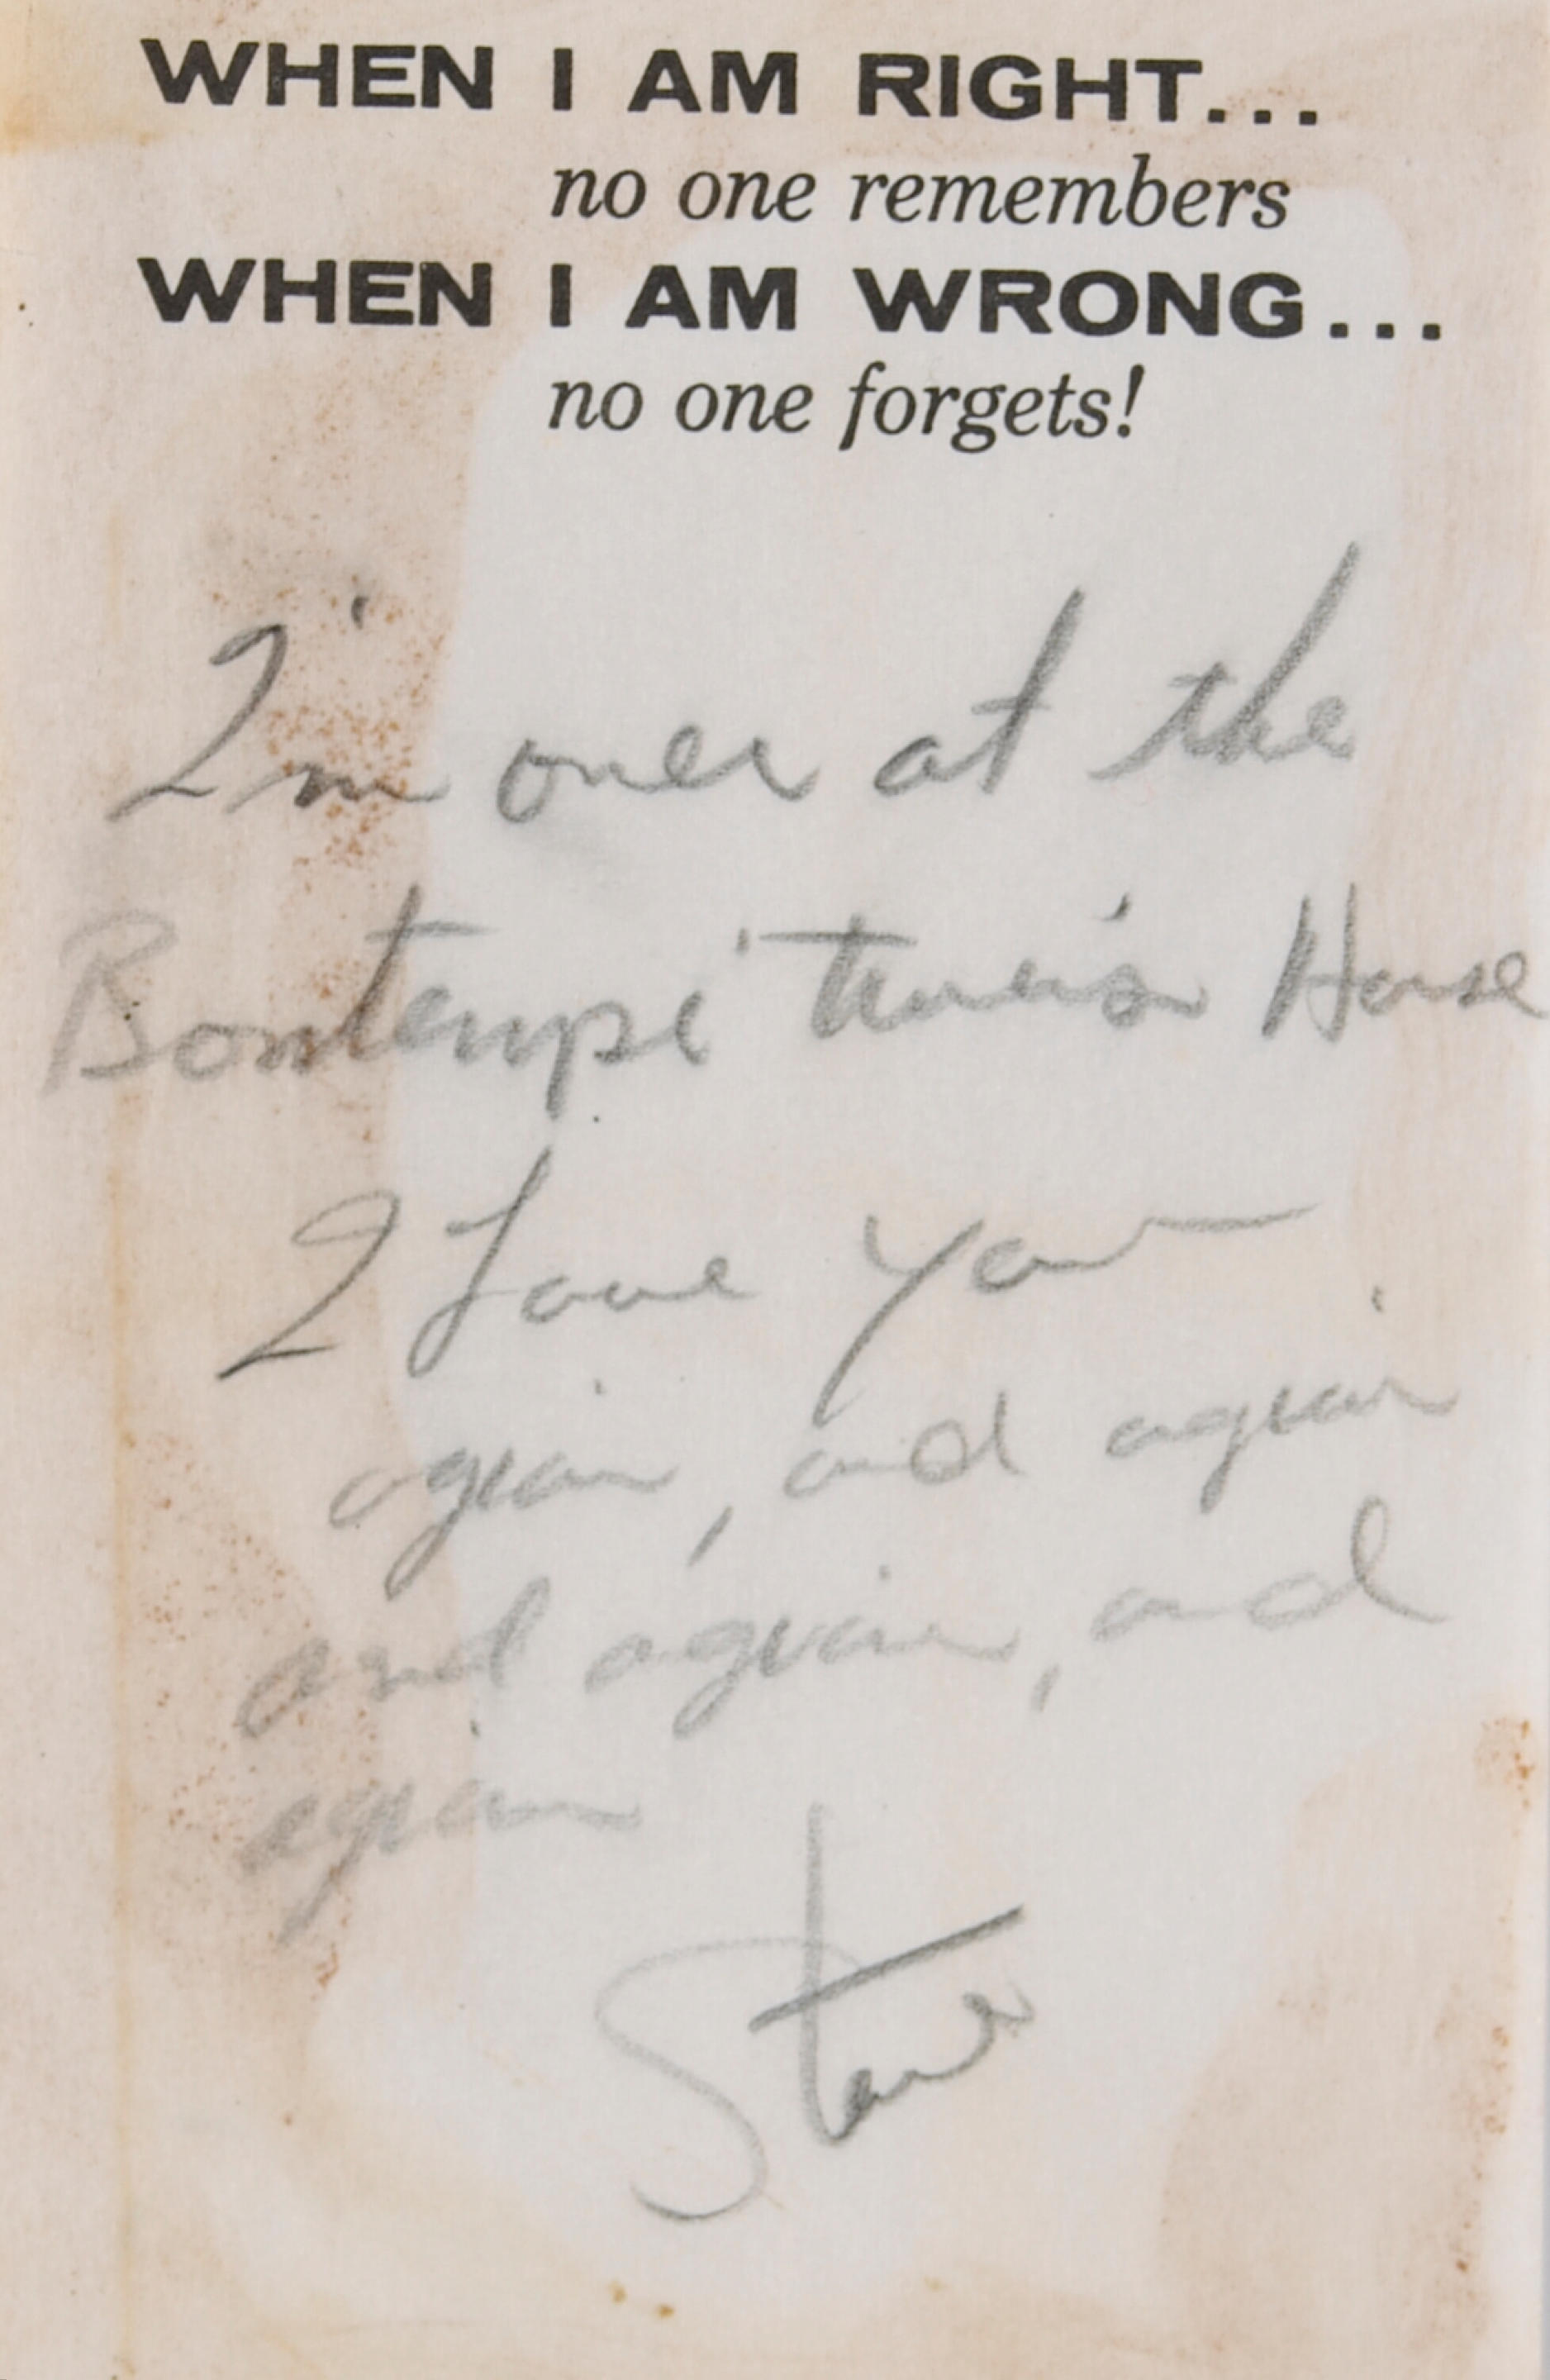 WHEN I AM RIGHT...
no one remembers
WHEN I AM WRONG...
no one forgets!
I'm over at the
Bontempi House
I Love you
again, and again
and again, and
again